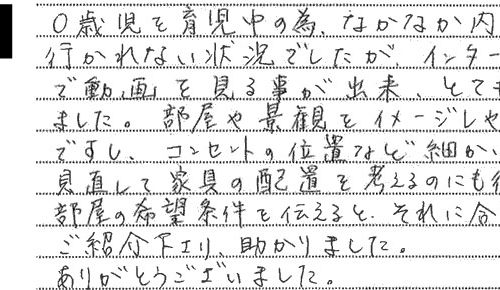 0歳児を育児中の為、なかなか内
行かれない状況でしたが、インター
で動画を見る事が出来、とても
ました。部屋や景観をイメージしや
ですし、コンセントの位置など細かい
見直して家具の配置を考えるのにも
部屋の希望条件を伝えると、それに合
ご紹介下さり、助かりました。
ありがとうございました。